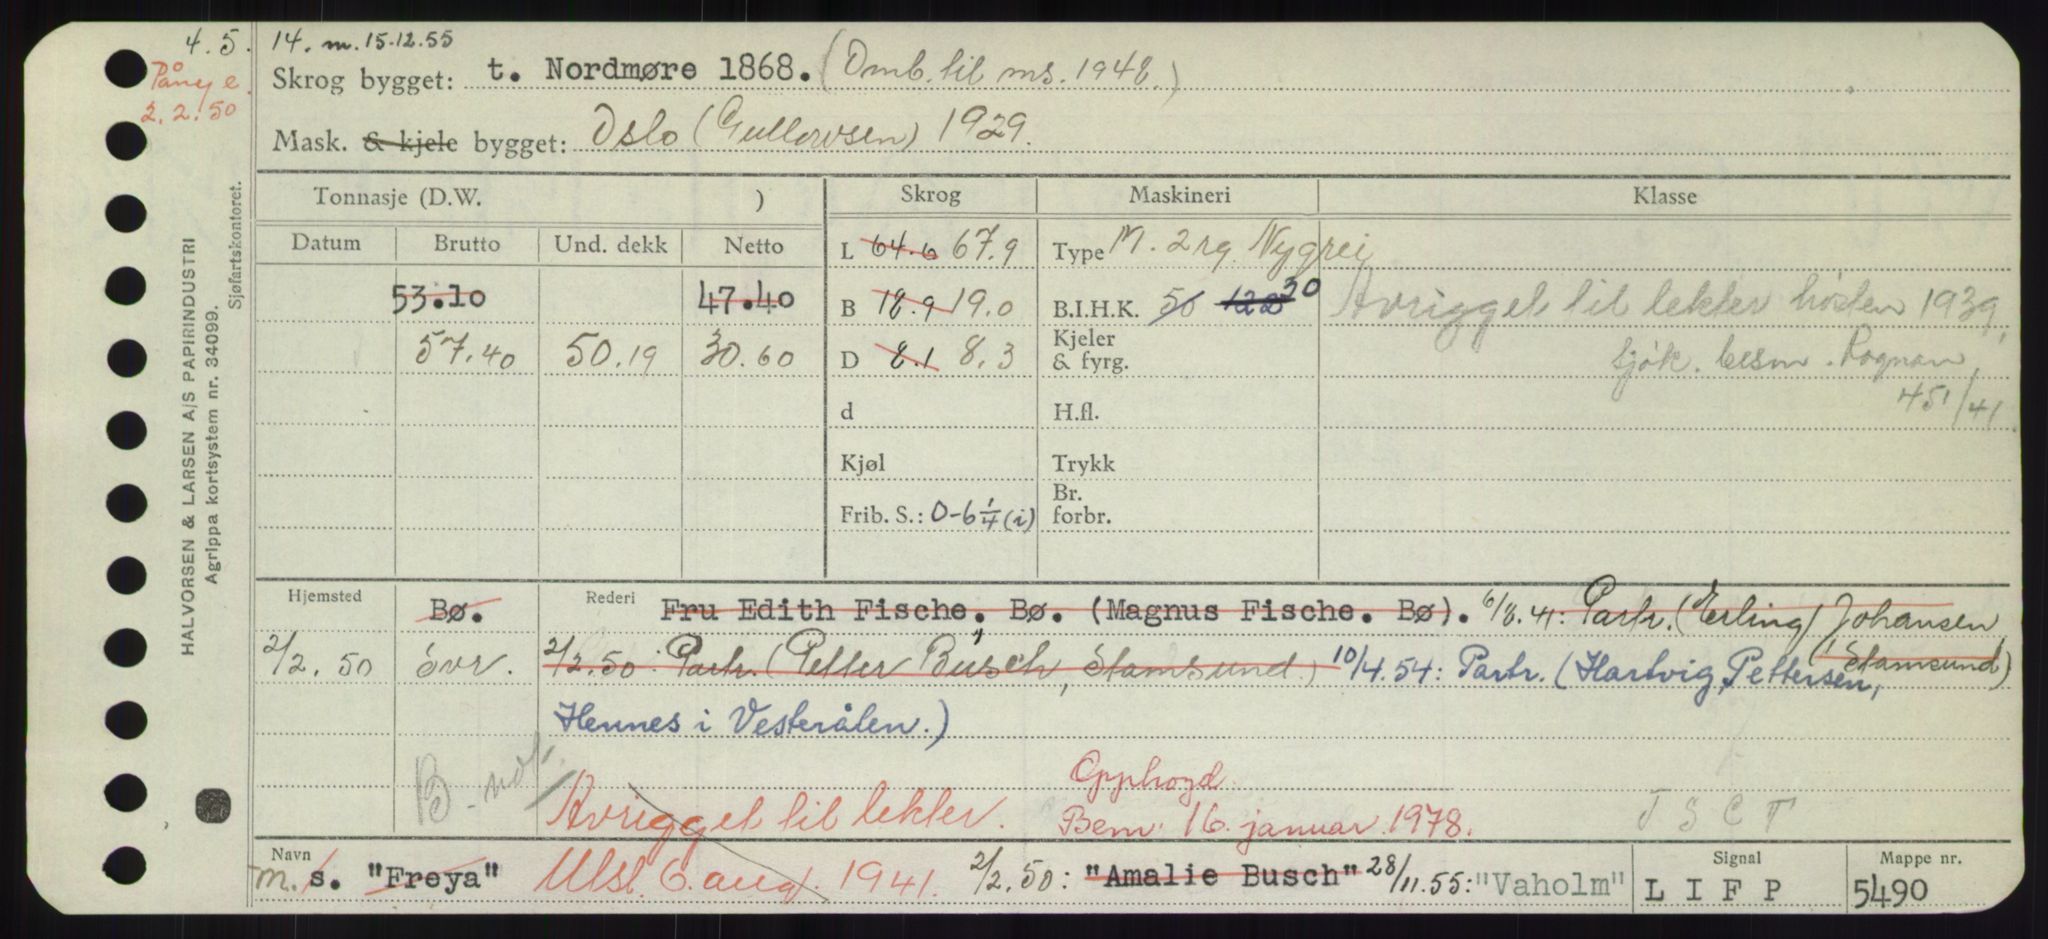 4.5. 14. m. 15.12.55
Pånye 2.2.50
Skrog bygget: t. Nordmøre 1868. (Omb. til ms. 1948.)
Mask. & kjele bygget: Oslo (Gullowsen) 1929.
HALVORSEN & LARSEN A/S PAPIRINDUSTRI
Agrippa kortsystem nr. 34099.
Sjøfartskontoret.
Tonnasje (D.W. ) Skrog Maskineri Klasse
Datum Brutto Und. dekk Netto L 64.6 67.9 Type M. 2 rg. Nygrei
53.10 47.40 B 18.9 19.0 B.I.H.K. 50 122 30 Avrigget til lekter høsten 1939,
57.40 50.19 30.60 D 8.1 8.3 Kjeler & fyrg. sjøk. besm. Rognan,
45/41
d H.fl.
Kjøl Trykk
Frib. S.: 0-6 1/4 (i) Br. forbr.
Hjemsted Bø. Rederi Fru Edith Fische. Bø. (Magnus Fische. Bø). 6/8.41: Partr. (Erling Johansen, Stamsund)
2/2.50 Svr. 2/2.50: Partr. (Petter Busch, Stamsund.) 10/4.54: Partr. (Hartvig Pettersen,
Hennes i Vesterålen.)
B-not.
Avrigget til lekter. Opphogd.
Bem. 16. januar 1978. J S C T
Navn m. s. "Frøya" Utsl. 6. aug. 1941. 2/2.50: "Amalie Busch" 28/11.55: "Vaholm" Signal L I F P Mappe nr. 5490